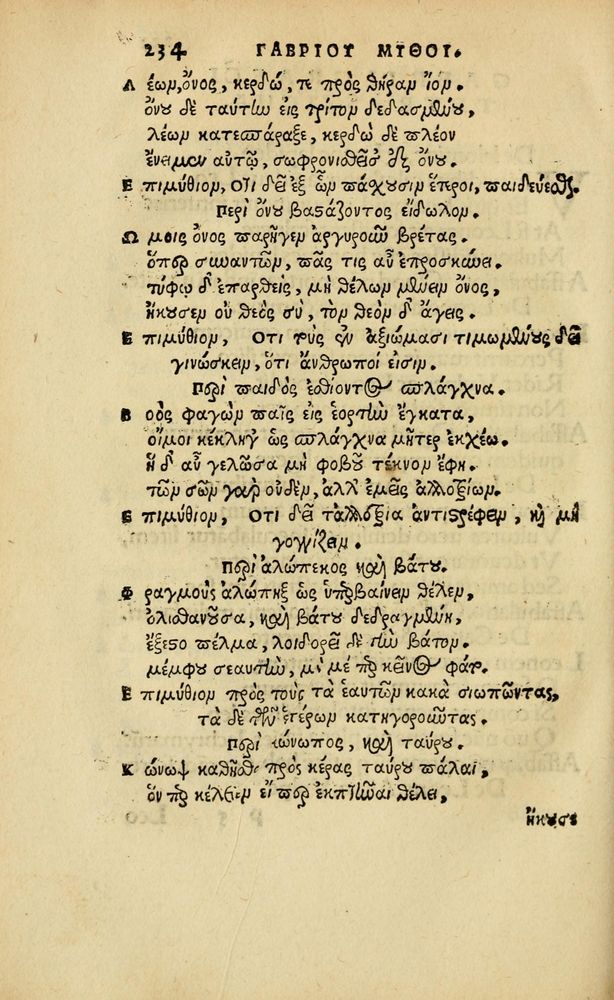 234 ΓΑΒΡΙΟΥ ΜΥΘΟΙ.
Λέων, ὄνος, κερδώ, τε πρὸς θήραν ἴον.
ὄνου δὲ ταύτην εἰς τρίτον δεδασμένου,
λέων κατεσπάραξε, κερδὼ δὲ πλέον
ἔνειμεν αὐτῷ, σωφρονισθεῖσ᾽ ἐξ ὄνου.
Ἐπιμύθιον, Ὅτι δεῖ ἐξ ὧν πάσχουσιν ἕτεροι, παιδεύεσθαι.
Περὶ ὄνου βαστάζοντος εἴδωλον.
Ὤμοις ὄνος παρῆγεν ἀργυροῦν βρέτας.
ὅπερ συναντῶν, πᾶς τις αὖ ἐπροσκύνει.
τύφῳ δ᾽ ἐπαρθεὶς, μὴ θέλων μένειν ὄνος,
ἤκουσεν οὐ θεὸς σὺ, τὸν θεὸν δ᾽ ἄγεις.
Ἐπιμύθιον, Ὅτι τοὺς ἐν ἀξιώμασι τιμωμένους δεῖ
γινώσκειν, ὅτι ἄνθρωποί εἰσιν.
Περὶ παιδὸς ἐσθίοντος σπλάγχνα.
Βοὸς φαγὼν παῖς εἰς ἑορτὴν ἔγκατα,
οἴμοι κέκληγ᾽ ὡς σπλάγχνα μῆτερ ἐκχέω.
ἡ δ᾽ αὖ γελῶσα μὴ φοβοῦ τέκνον ἔφη.
τῶν σῶν γὰρ οὐδὲν, ἀλλ᾽ ἐμεῖς ἀλλοτρίων.
Ἐπιμύθιον, Ὅτι δεῖ τἀλλότρια ἀντιστρέφειν, καὶ μὴ
γογγύζειν.
Περὶ ἀλώπεκος καὶ βάτου.
Φραγμοὺς ἀλώπηξ ὡς ὑπερβαίνειν θέλεν,
ὀλισθανοῦσα, καὶ βάτου δεδραγμένη,
ἔξεστο πέλμα, λοιδορεῖ δὲ τὴν βάτον.
μέμφου σεαυτὴν, μὴ μέ περ κεῖνος φάτ.
Ἐπιμύθιον πρὸς τοὺς τὰ ἑαυτῶν κακὰ σιωπῶντας,
τὰ δὲ τῶν ἑτέρων κατηγοροῦντας.
Περὶ κώνωπος, καὶ ταύρου.
Κώνωψ καθῆσθ᾽ πρὸς κέρας ταύρου πάλαι,
ὅν περ κέλευεν εἴπερ ἐκπτῆναι θέλει,
ἤκουσε